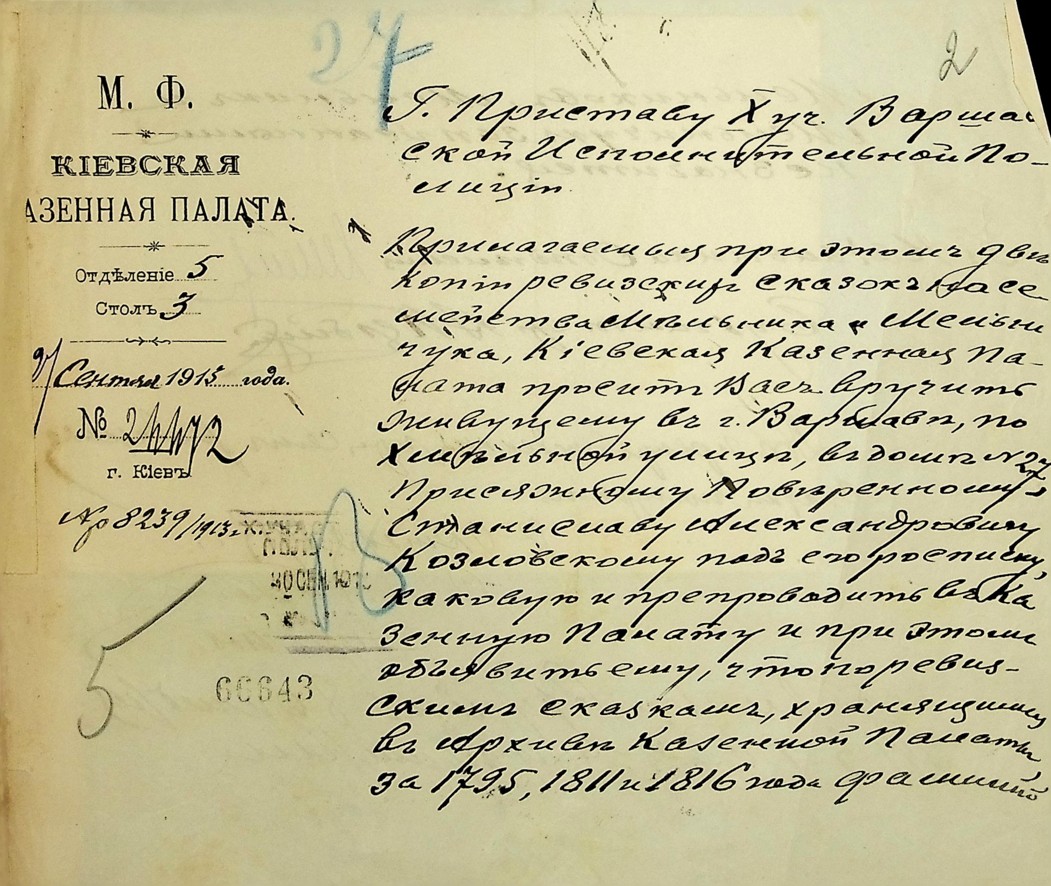 27
2
М. Ф.
КІЕВСКАЯ
АЗЕННАЯ ПАЛАТА.
Отдѣленіе 5
Столъ 3
27 Сентября 1913 года.
№ 24472
г. Кіевъ
№ 8239/1913 г.
30 СЕН 191
5
66643
Г. Приставу X уч. Варша
ской Исполнительной По-
лиціи.
Прилагаемыя при этомъ двѣ
копіи ревизскихъ сказокъ на се
мейства Мѣльника и Мельни
чука, Кіевская Казенная Па-
лата проситъ Васъ вручить
живущему въ г. Варшавѣ, по
Хмѣльной улицѣ, въ домѣ № 27
Присяжному Повѣренному
Станиславу Александровичу
Козловскому подъ его росписку,
каковую и препроводить въ Ка
зенную Палату и при этомъ
объявить ему, что по ревиз-
скимъ сказкамъ, хранящимся
въ Архивѣ Казенной Палаты,
за 1795, 1811 и 1816 года фамилій